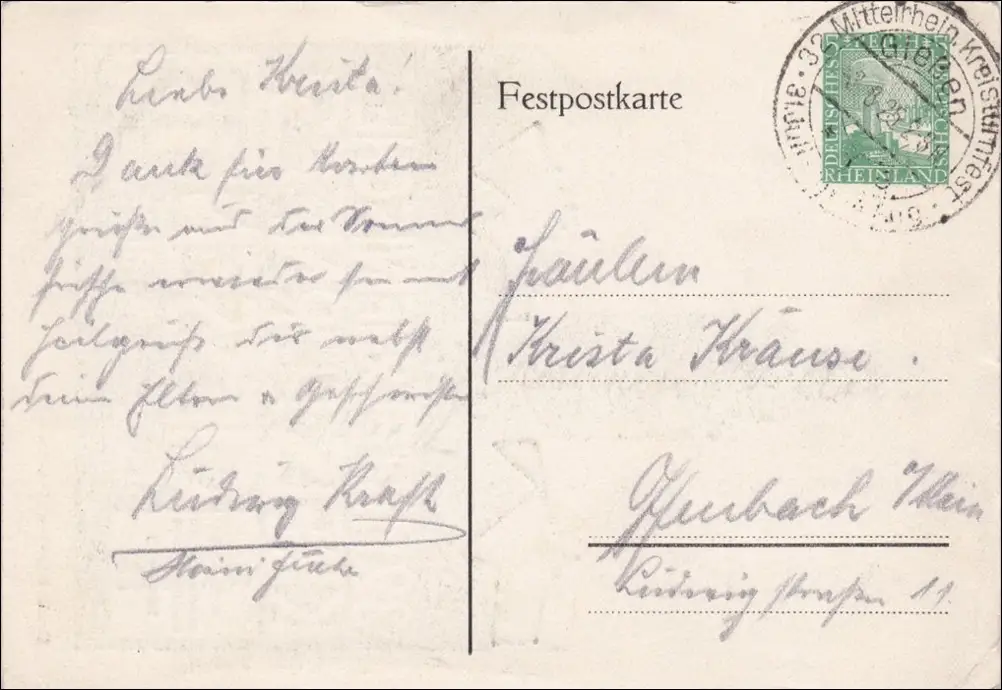 Liebe Krista!
Dank für Karten
Grüße und der Sommer
frische
Heilgruß dir nebst
dein Eltern u Geschwister
Ludwig Kraft
Festpostkarte
32. Mittelrhein. Kreisturnfest
Gießen
DEUTSCHES REICH
RHEINLAND
5
Fräulein
Krista Krause.
Offenbach a/Main
Ludwigstraße 11